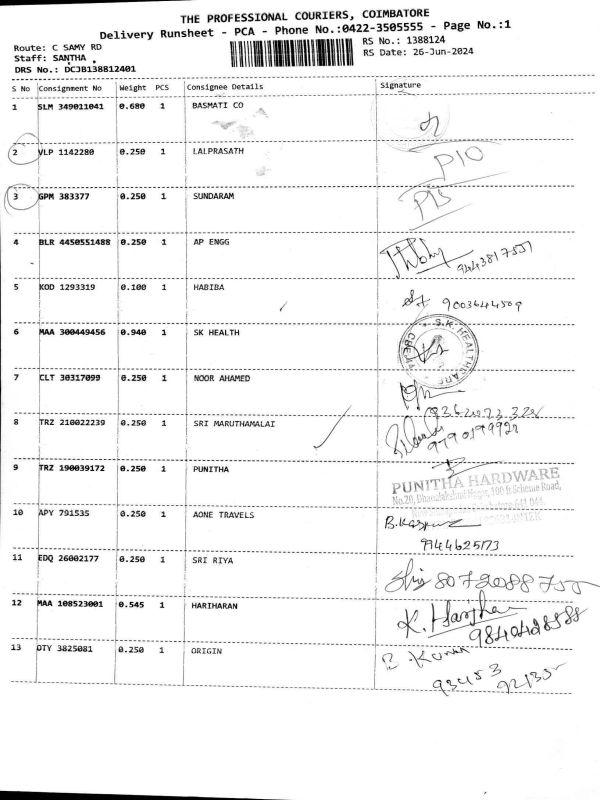 THE PROFESSIONAL COURIERS, COIMBATORE
Delivery Runsheet - PCA - Phone No.:0422-3505555 - Page No.:1
Route: C SAMY RD
Staff: SANTHA
DRS No.: DCJB138812401
RS No.: 1388124
RS Date: 26-Jun-2024
S No Consignment No Weight PCS Consignee Details Signature
1 SLM 349011041 0.680 1 BASMATI CO
2 VLP 1142280 0.250 1 LALPRASATH P10
3 GPM 383377 0.250 1 SUNDARAM
4 BLR 4450551488 0.250 1 AP ENGG 9443817551
5 KOD 1293319 0.100 1 HABIBA 9003644509
6 MAA 300449456 0.940 1 SK HEALTH S.K. HEALTHCARE
7 CLT 30317099 0.250 1 NOOR AHAMED
8 TRZ 210022239 0.250 1 SRI MARUTHAMALAI
9 TRZ 190039172 0.250 1 PUNITHA
PUNITHA HARDWARE
No.20, Dhanalakshmi Nagar, 100 ft Scheme Road,
10 APY 791535 0.250 1 AONE TRAVELS
9944625173
11 EDQ 26002177 0.250 1 SRI RIYA
12 MAA 108523001 0.545 1 HARIHARAN K. Hariharan
9840428588
13 OTY 3825081 0.250 1 ORIGIN